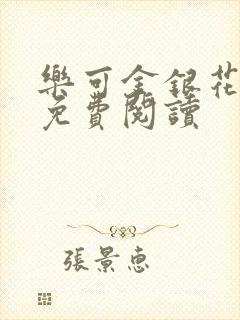 樂可金銀花
免費閱讀
張景惠